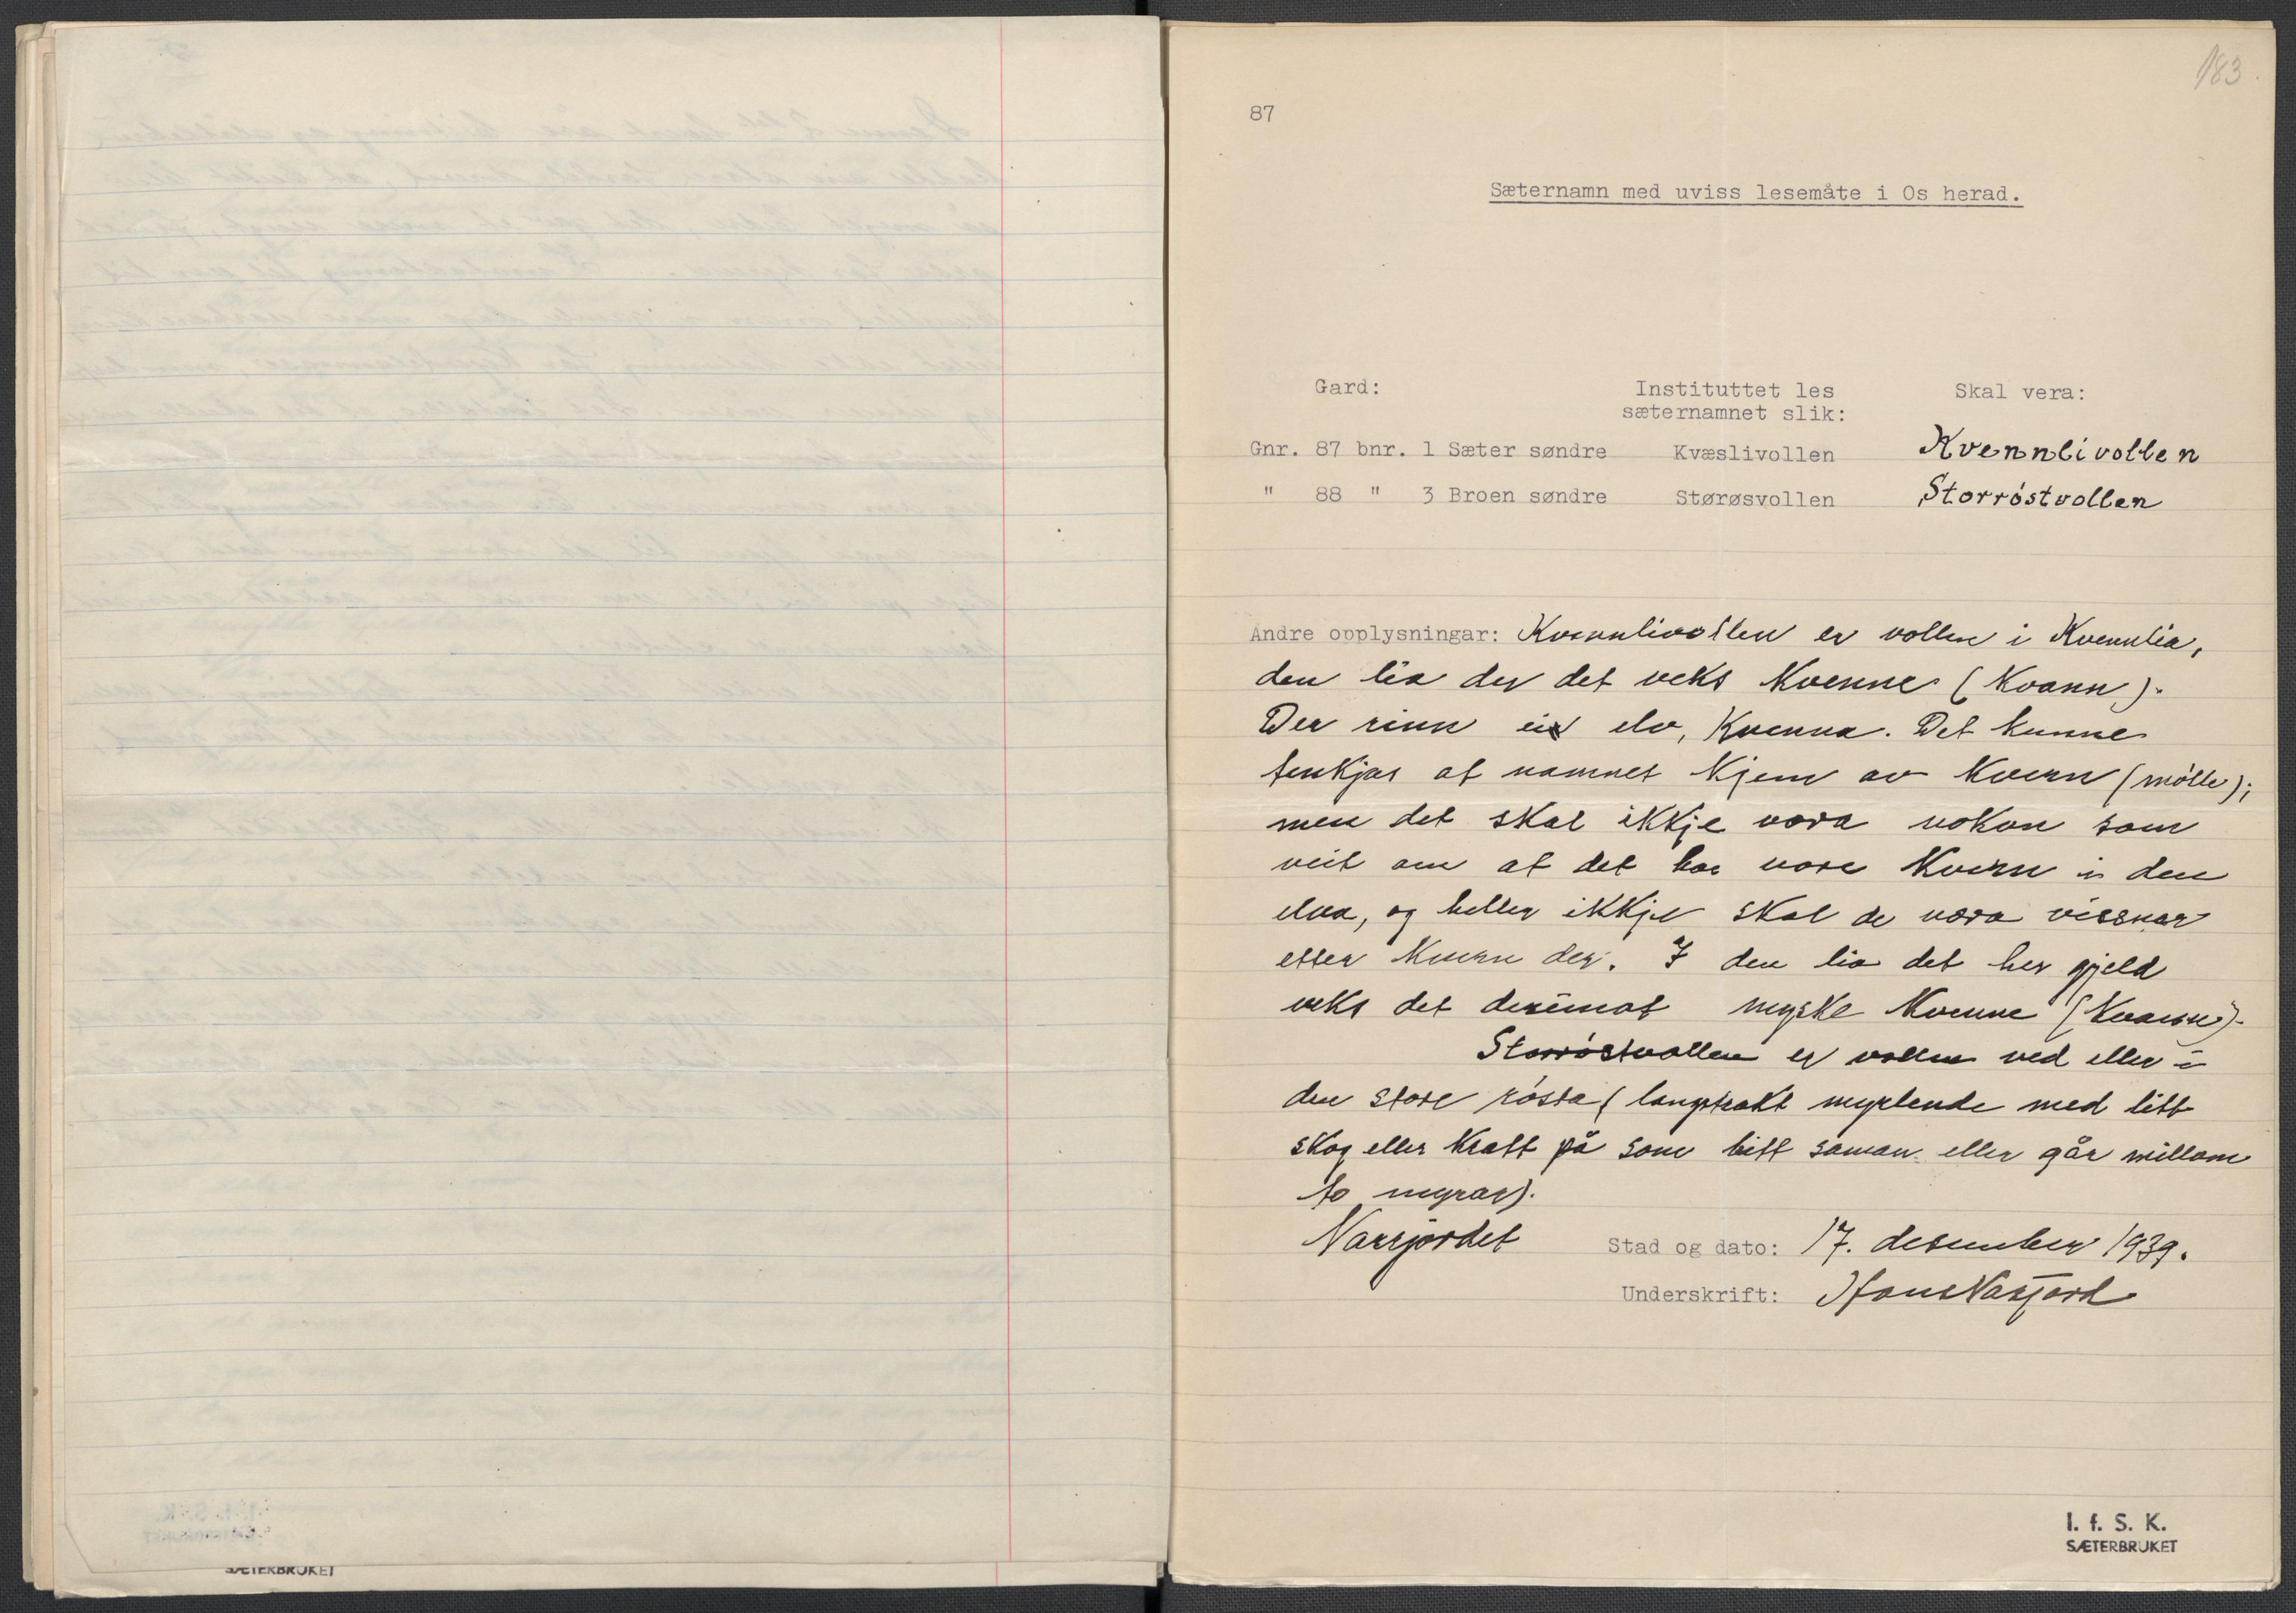 183.
87
Sæternamn med uviss lesemåte i Os herad.
Gard: Instituttet les Skal vera:
sæternamnet slik:
Gnr. 87 bnr. 1 Sæter søndre Kvæslivollen Kvennlivollen
" 88 " 3 Broen søndre Størøsvollen Storröstvollen
Andre opplysningar: Kvennlivollen er vollen i Kvennlia,
den lia der det veks Kvenne (Kvann).
Der rinn ei elv, Kvenna. Det kunne
tenkjas at namnet kjem av Kvern (mölle);
men det skal ikkje vera nokon som
veit om at det har vore Kvern i den
elva, og heller ikkje skal de vera
etter Kvern der. I den lia det her gjeld
veks det derimot mykje Kvenne (Kvann).
Storröstvollen er vollen ved eller i
den store rösta (langstrakt myrlende med litt
skog eller kratt på som bitt saman eller går millom
to myrar).
Narrjordet Stad og dato: 17. desember 1939.
Underskrift: Hans Nasjord
I. f. S. K.
SÆTERBRUKET
SÆTERBRUKET